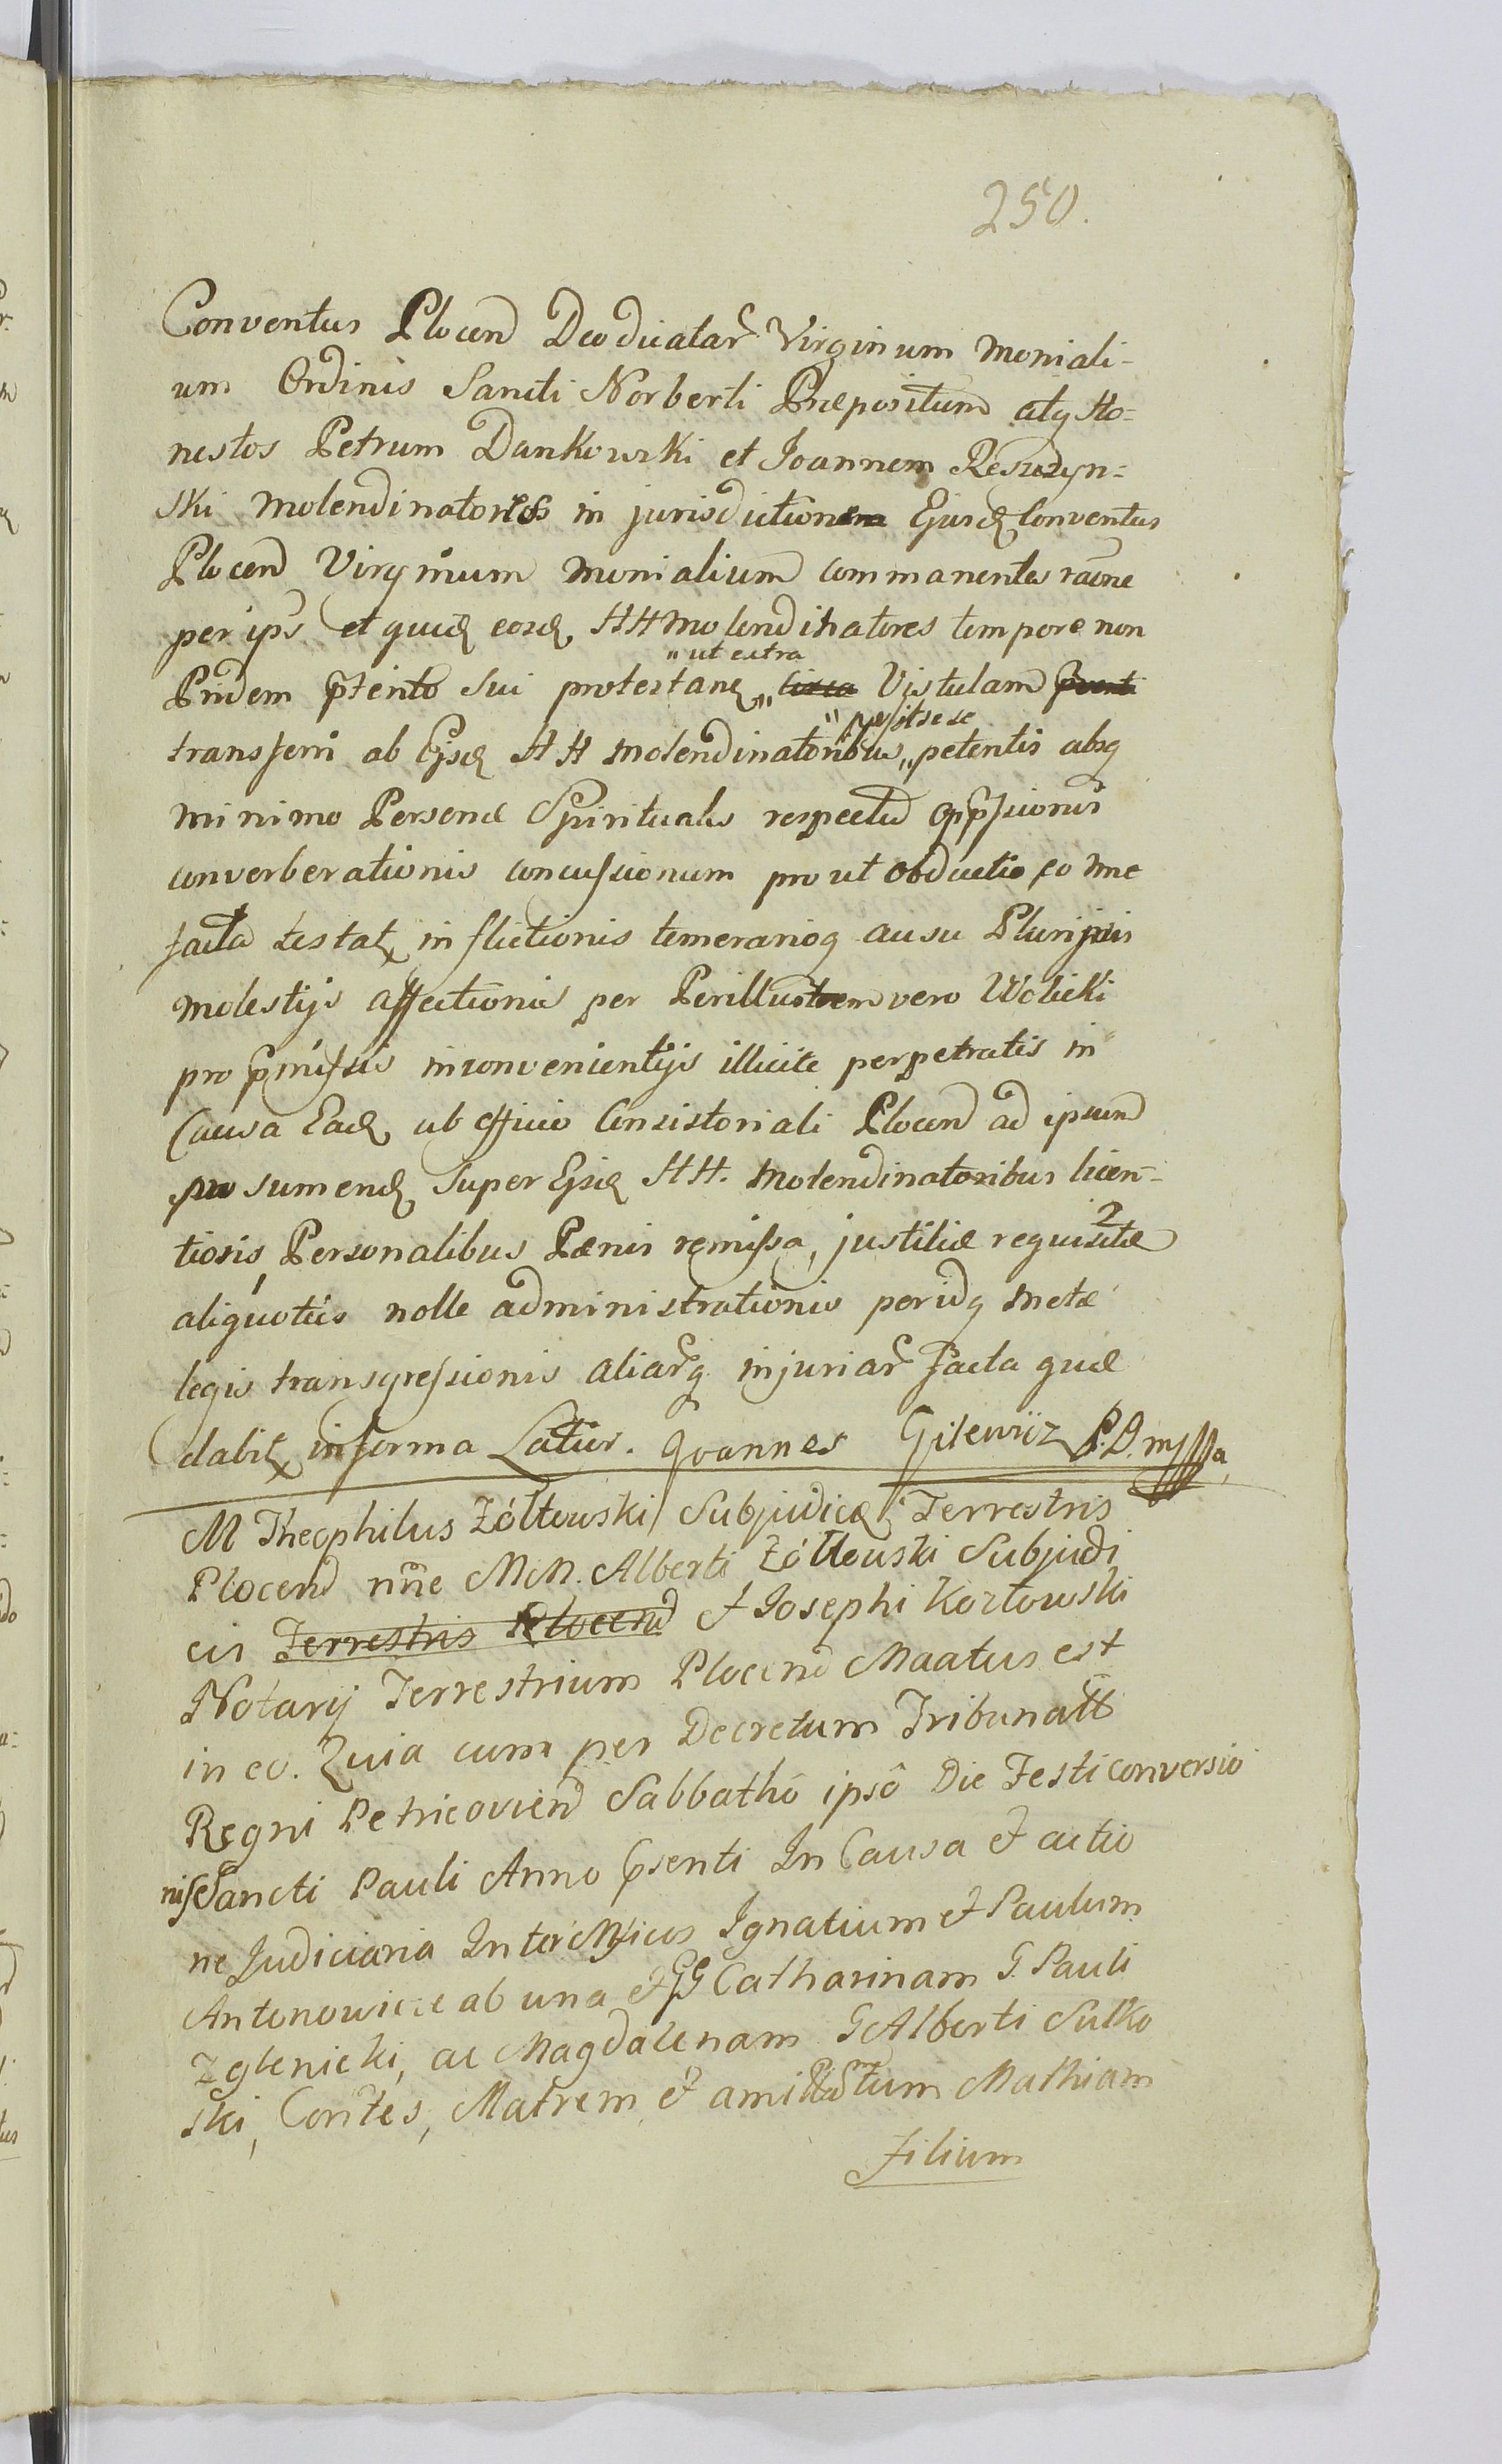 250.
Conventus Plocen Deodicatar Virginum Moniali-
um Ordinis Sancti Norberti Præpositum atq Ho=
nestos Petrum Dankowski et Joannem Reszczyn=
ski Molendinatores in jurisdictione Ejusd Conventus
Plocen Virginum Monialium commanentes raone
per ips et quid eosd HH Molendinatores tempore non
" ut extra
Pridem pterito sui protestans „ circa Vistulam
transferri ab Ejsd HH Molendinatoribus „ petentis absq
minimo Personæ Spiritualis respectu oppssionis
converberationis concussionum pro ut obductio eo nne
facta testat inflictionis temerarioq ausu Plurimis
molestijs affectionis per Perillustrem vero Wolicki
pro pmissis inconvenientijs illicite perpetratis in
Causa Ead ab officio Consistoriali Plocen ad ipsum
pro sumend super Ejsd HH. Molendinatoribus licen-
tiosis Personalibus Pænis remissa, justitiæ requisitæ
aliquoties nolle administrationis peridq metæ
legis transgressionis aliarq injuriar facta quæ
dabit in forma Latior. Joannes Gilewicz P.D. mppa
M Theophilus Zółtowski Subjudicd Terrestris
Plocen nne MM. Alberti Zółtowski Subjudi
cis Terrestris Plocen et Josephi Kozłowski
Notarij Terrestrium Plocen Maatus est
in eo. Quia cum per Decretum Tribunatt
Regni Petricovien Sabbathô ipsô Die Festi conversio
nis Sancti Pauli Anno psenti In Causa et actio
ne Judiciaria Inter Mficos Ignatium et Paulum
Antonowicze ab una et GG Catharinam G. Pauli
Zglenicki, ac Magdalenam G Alberti Sulko
ski, Contes, Matrem et Mathiam
Filium